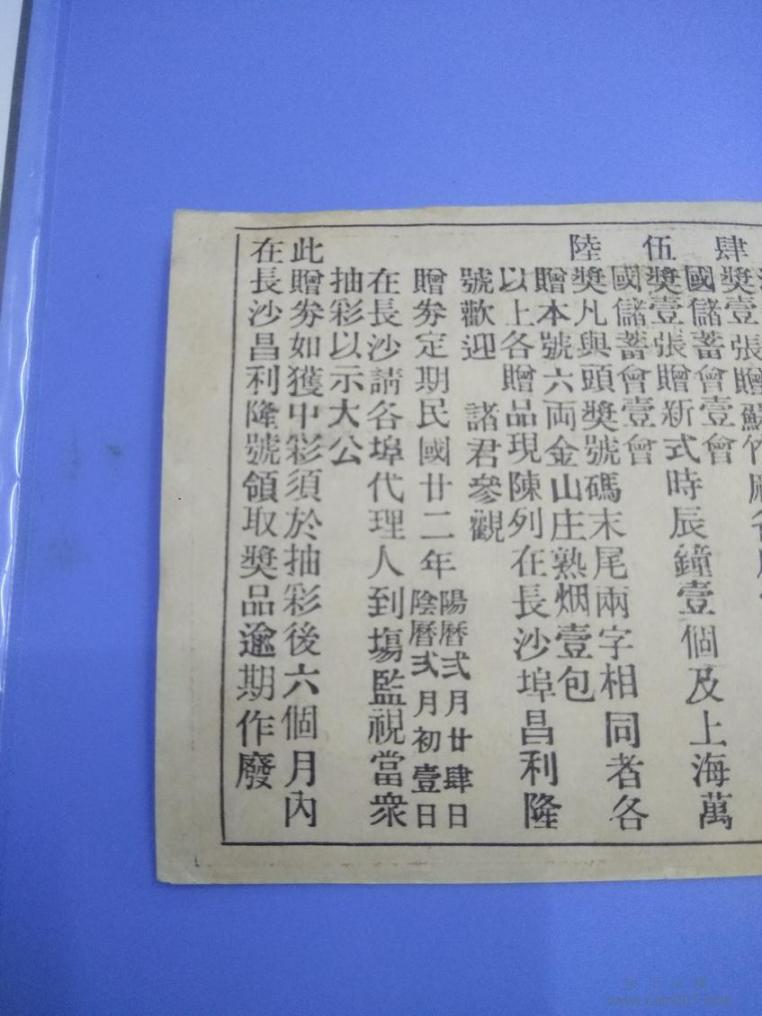 肆獎壹張贈蘇竹
國儲蓄會壹會
伍獎壹張贈新式時辰鐘壹個及上海萬
國儲蓄會壹會
陸獎凡與頭獎號碼末尾兩字相同者各
贈本號六両金山庄熟烟壹包
以上各贈品現陳列在長沙埠昌利隆
號歡迎 諸君參觀
贈券定期民國廿二年陽曆弍月廿肆日
陰曆弍月初壹日
在長沙請各埠代理人到塲監視當衆
抽彩以示大公
此贈券如獲中彩須於抽彩後六個月內
在長沙昌利隆號領取獎品逾期作廢